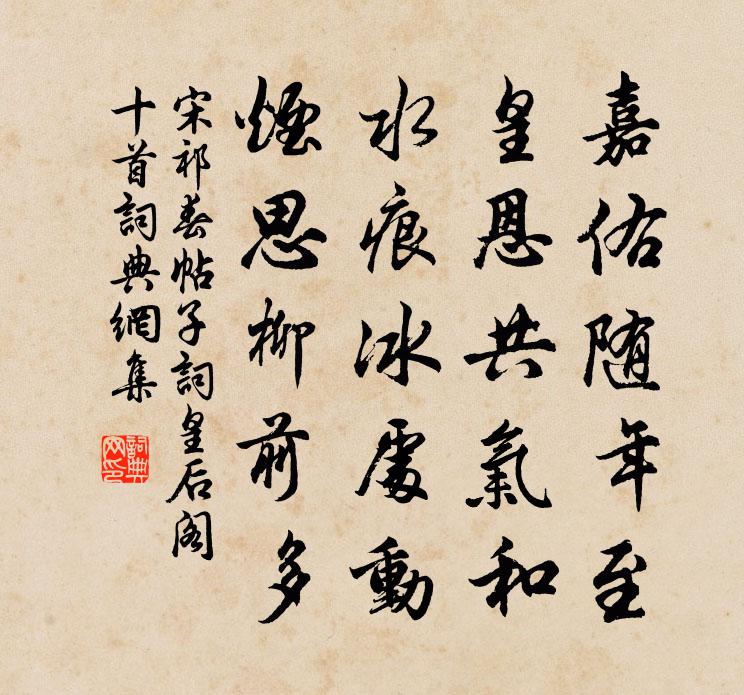 嘉佑随年至
皇恩共氣和
水痕冰處動
煙思柳前多
宋祁春帖子詞皇后阁
十首詞典網集
詞典网印